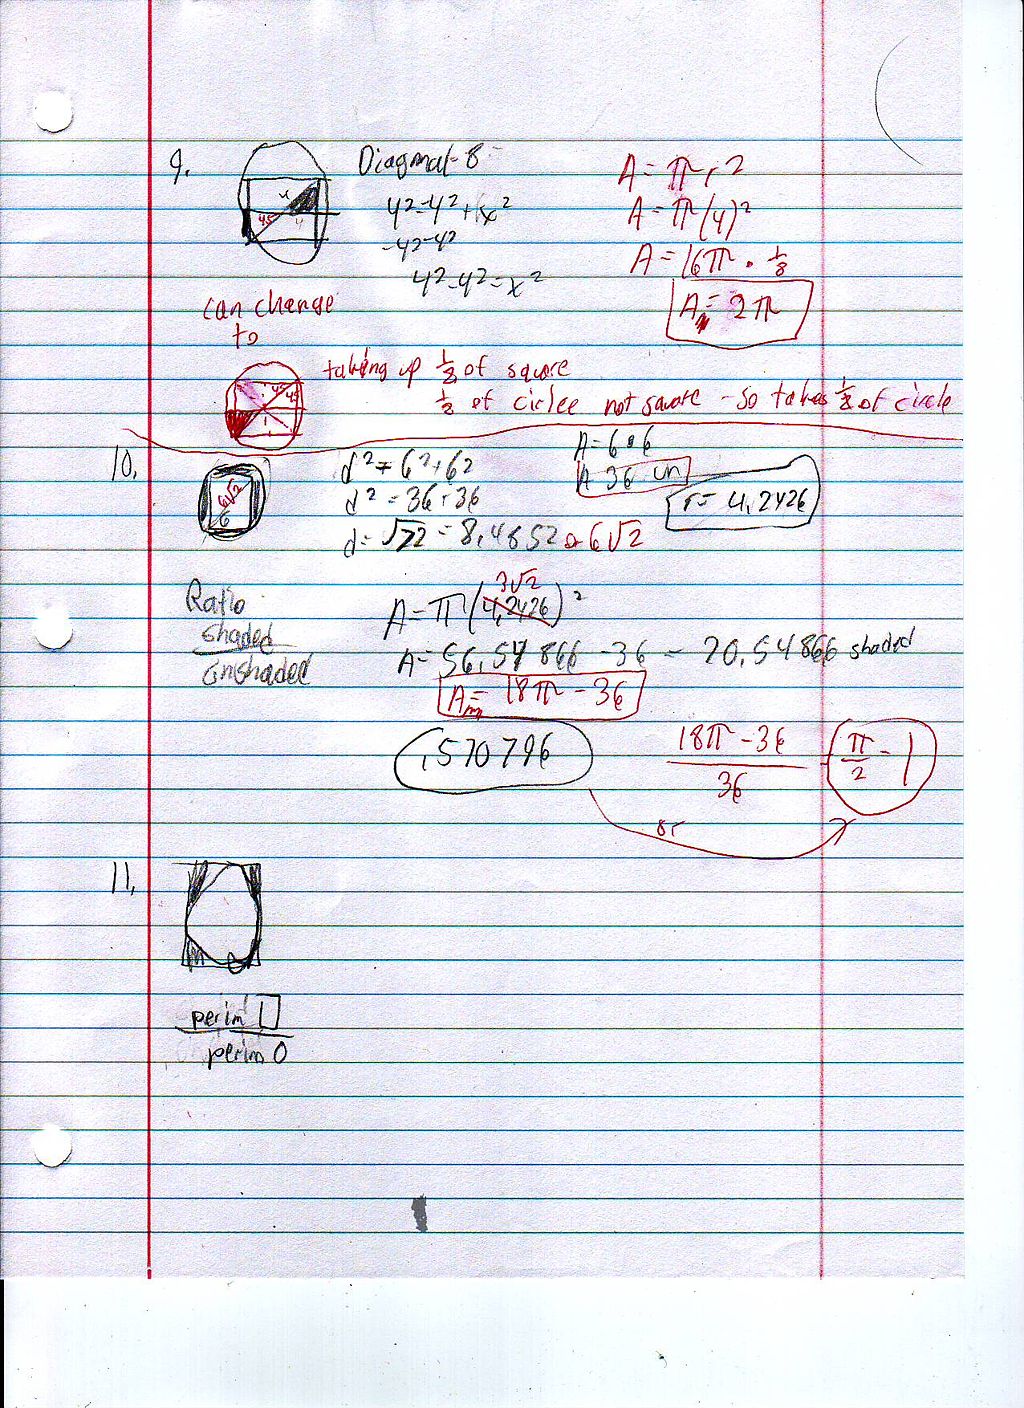 9.
Diagonal - 8
4² - 4² + x²
-4² -4²
4² - 4² = x²
A = πr2
A = π(4)²
A = 16π · 1/8
A = 2π
4
45
4
can change
to
45
45
taking up 1/2 of square
1/8 of circle not square - so takes 1/8 of circle
10.
6√2
6
d² = 6² + 62
d² = 36 + 36
d = √72 = 8,4852 or 6√2
A = 6 • 6
A 36 un
r = 4,2426
Ratio
shaded
unshaded
3√2
A = π(4,2426)²
A = 56,54866 - 36 = 20,54866 shaded
A = 18π - 36
,570796
18π - 36
36
π/2 - 1
or
11.
perim □
perim O